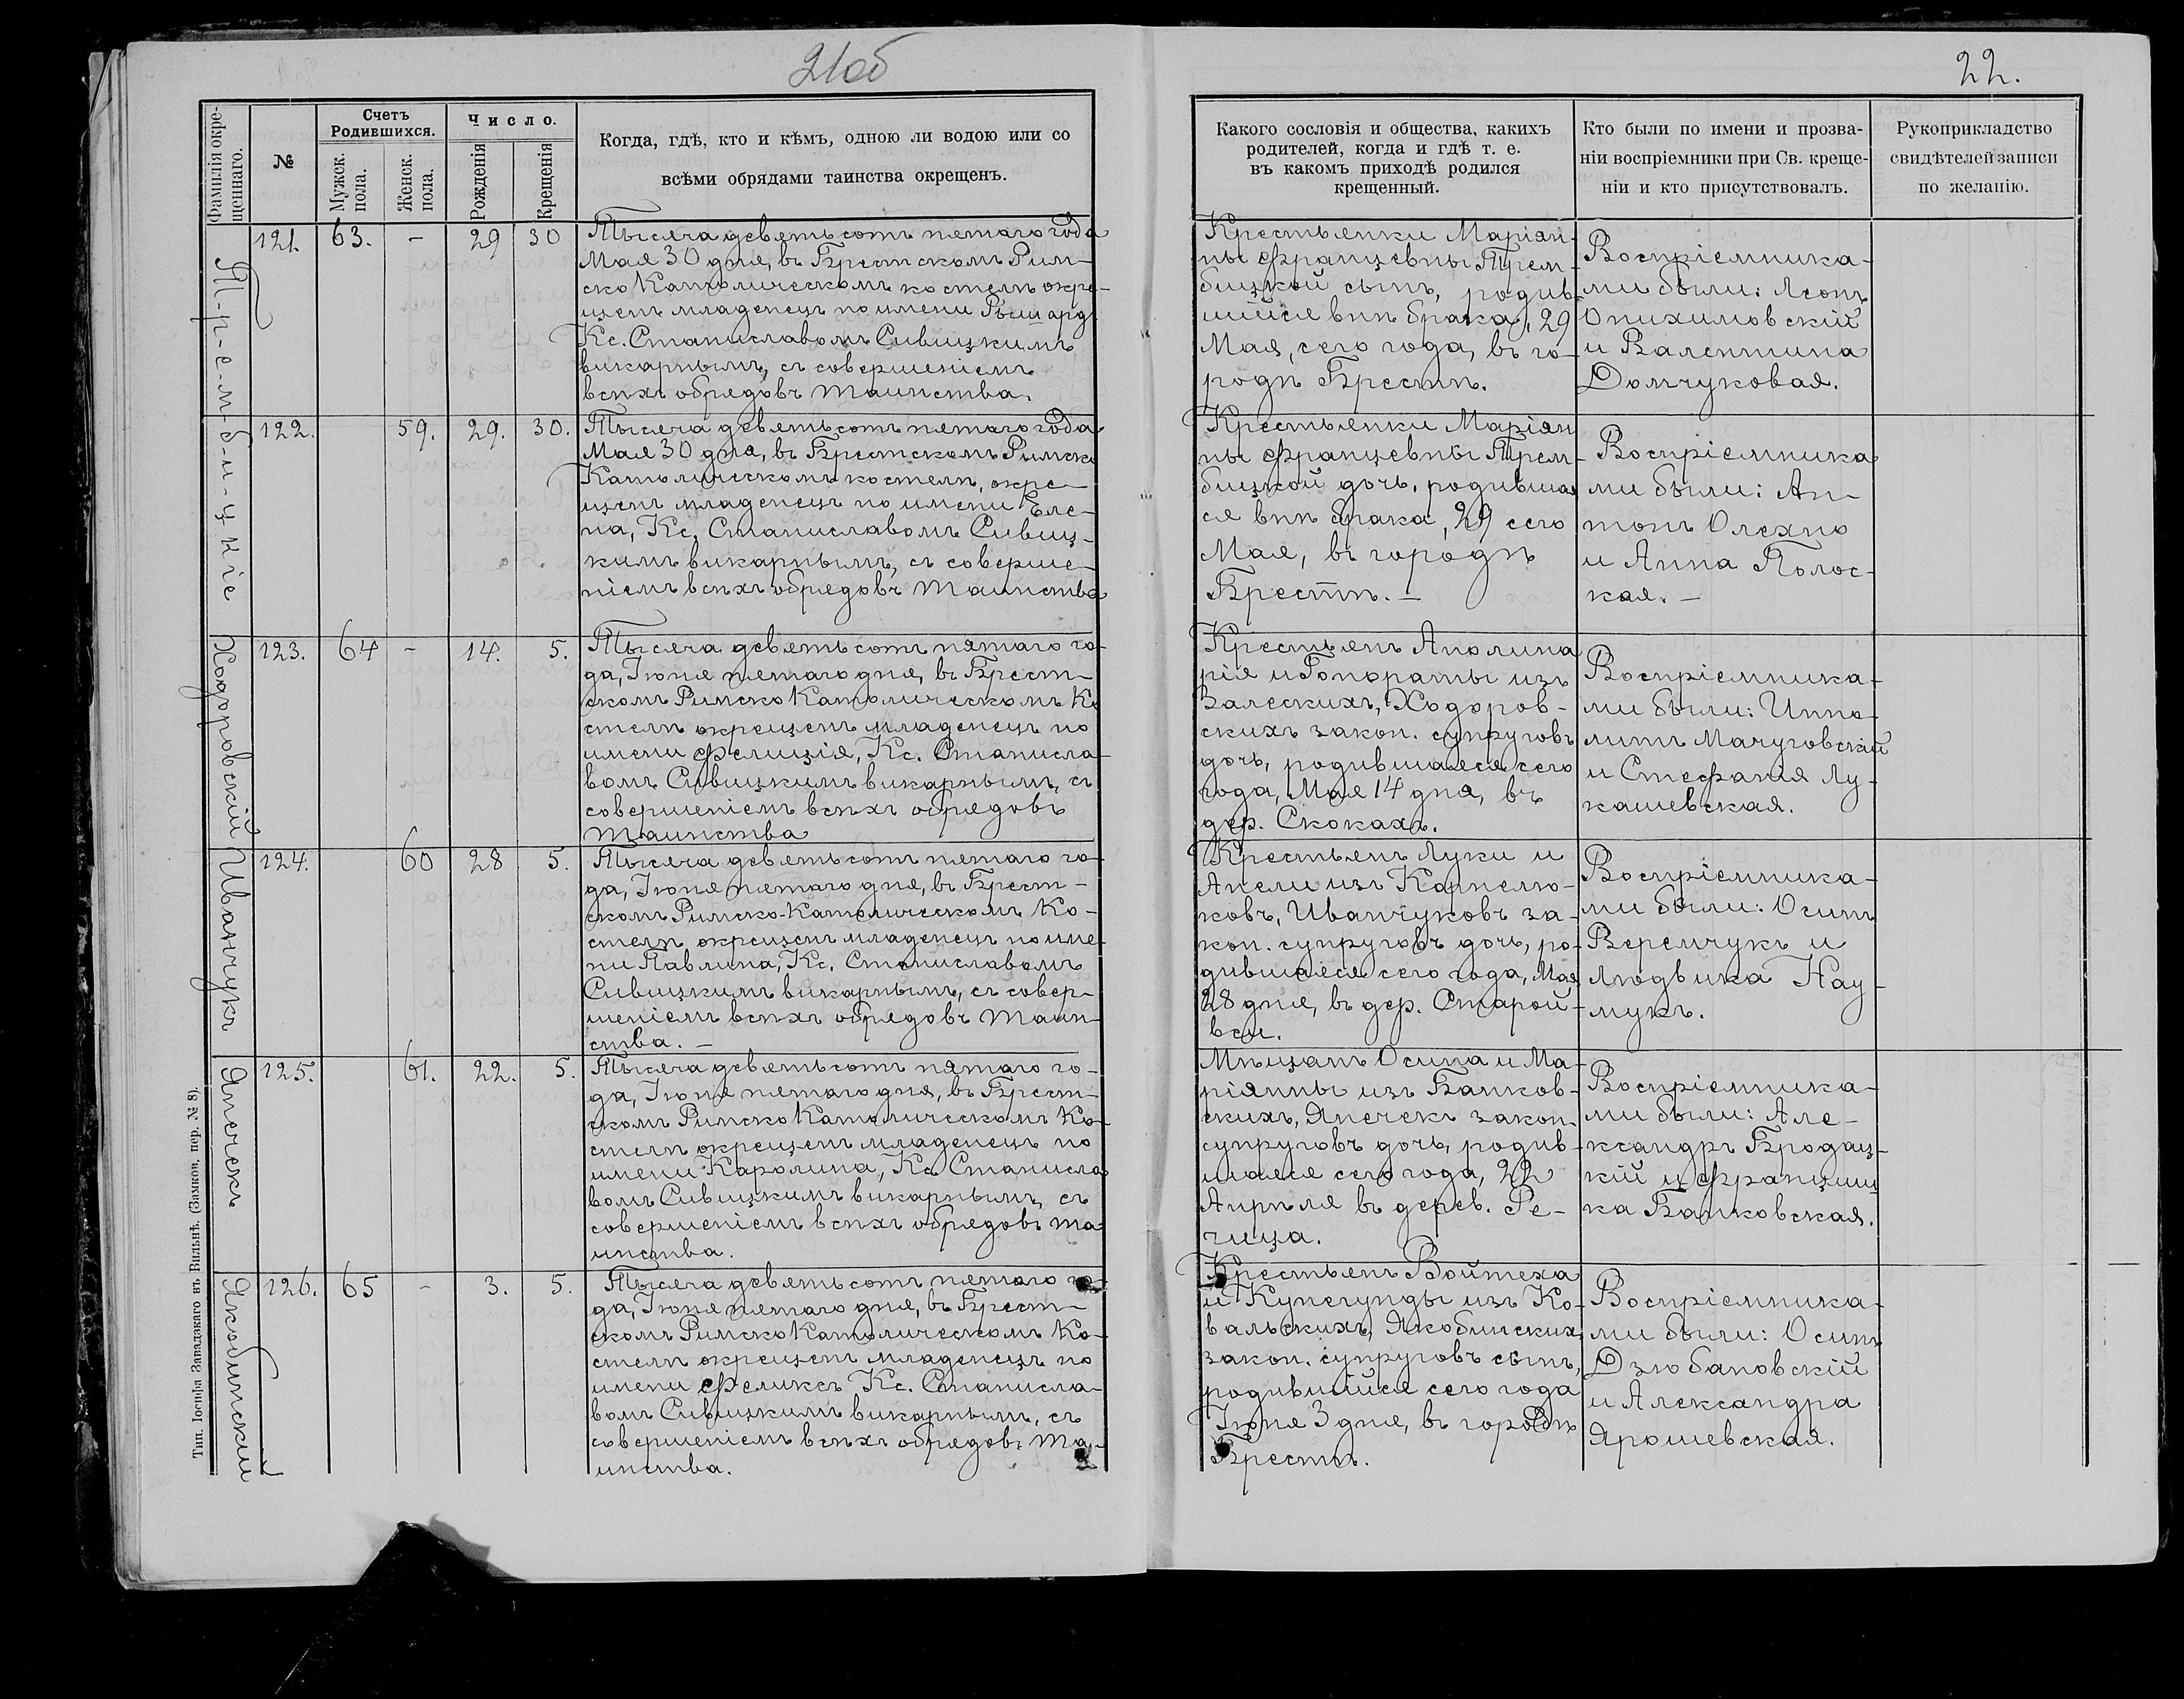 21об
22.
Фамилія окре-
щеннаго.
№
Счетъ
Родившихся.
Мужск.
пола.
Женск.
пола.
Число.
Рожденія
Крещенія
Когда, гдѣ, кто и кѣмъ, одною ли водою или со
всѣми обрядами таинства окрещенъ.
Какого сословія и общества, какихъ
родителей, когда и гдѣ т. е.
въ какомъ приходѣ родился
крещенный.
Кто были по имени и прозва-
ніи воспріемники при Св. креще-
ніи и кто присутствовалъ.
Рукоприкладство
свидѣтелей записи
по желанію.
Т-р-е-м-б-и-ц-кіе
121. 63. - 29 30
Тысяча девятьсотъ пятаго года
Мая 30 дня, въ Брестскомъ Рим-
ско Католическомъ костелѣ окре-
щенъ младенецъ по имени Рышард
Кс. Станиславомъ Сивицкимъ
викарнымъ, съ совершеніемъ
всѣхъ обрядовъ таинства.
Крестьянки Маріян-
ны Францевны Трем-
бицкой сынъ, родив-
шійся внѣ брака, 29
Мая, сего года, въ го-
родѣ Брестѣ.
Воспріемника-
ми были: Леонъ
Опихимовскій
и Валентина
Домчуковая.
122. 59. 29. 30.
Тысяча девятьсотъ пятаго года
Мая 30 дня, въ Брестскомъ Римско
Католическомъ костелѣ, окре-
щенъ младенецъ по имени Еле-
на, Кс. Станиславомъ Сивиц-
кимъ викарнымъ, съ соверше-
ніемъ всѣхъ обрядовъ таинства
Крестьянки Маріян
ны Францевны Трем-
бицкой дочь, родившая
ся внѣ брака, 29 сего
Мая, въ городѣ
Брестѣ. –
Воспріемника
ми были: Ан-
тонъ Олехно
и Анна Полос-
кая. –
Ходоровскій
123. 64 - 14. 5.
Тысяча девятьсотъ пятаго го-
да, Іюня пятаго дня, въ Брест-
скомъ Римско Католическомъ Ко
стелѣ окрещенъ младенецъ по
имени Фелиція, Кс. Станисла-
вомъ Сивицкимъ викарнымъ, съ
совершеніемъ всѣхъ обрядовъ
таинства
Крестьянъ Аполина
рія и Гонораты изъ
Залескихъ, Ходоров-
скихъ закон. супруговъ
дочь, родившаяся сего
года, Мая 14 дня, въ
дер. Скокахъ.
Воспріемника-
ми были: Иппо-
литъ Мачуговскій
и Стефанія Лу-
кашевская.
Иванчукъ
124. 60 28 5.
Тысяча девятьсотъ пятаго го-
да, Іюня пятаго дня, въ Брест-
скомъ Римско-Католическомъ Ко-
стелѣ, окрещенъ младенецъ по име-
ни Павлина, Кс. Станиславомъ
Сивицкимъ викарнымъ, съ совер-
шеніемъ всѣхъ обрядовъ таин-
ства. –
Крестьянъ Луки и
Анели изъ Карпелю-
ковъ, Иванчуковъ за-
кон. супруговъ дочь, ро-
дившаяся сего года, Мая
28 дня, въ дер. Старой-
вси.
Воспріемника-
ми были: Осипъ
Веремчукъ и
Людвика Нау-
мукъ.
Янечекъ
125. 61. 22. 5.
Тысяча девятьсотъ пятаго го-
да, Іюня пятаго дня, въ Брест-
скомъ Римско Католическомъ Ко-
стелѣ окрещенъ младенецъ по
имени Каролина, Кс. Станисла
вомъ Сивицкимъ викарнымъ, съ
совершеніемъ всѣхъ обрядовъ та
инства.
Мѣщанъ Осипа и Ма-
ріянны изъ Банков-
скихъ, Янечекъ закон.
супруговъ дочь, родив-
шаяся сего года, 22
Апрѣля въ дерев. Ре-
чица.
Воспріемника-
ми были: Але-
ксандръ Бродац-
кій и Францишк
ка Банковская.
Якобинскій
126. 65 - 3. 5.
Тысяча девятьсотъ пятаго го-
да, Іюня пятаго дня, въ Брест-
скомъ Римско Католическомъ Ко-
стелѣ окрещенъ младенецъ по
имени Феликсъ Кс. Станисла-
вомъ Сивицкимъ викарнымъ, съ
совершеніемъ всѣхъ обрядовъ та-
инства.
Крестьянъ Войтеха
и Кунегунды изъ Ко-
вальскихъ, Якобинских
закон. супруговъ сынъ,
родившійся сего года
Іюня 3 дня, въ городѣ
Брестѣ.
Воспріемника-
ми были: Осипъ
Дзюбановскій
и Александра
Ярошевская.
Тип. Іосифа Завадзкаго въ Вильнѣ. (Замков. пер. № 8).